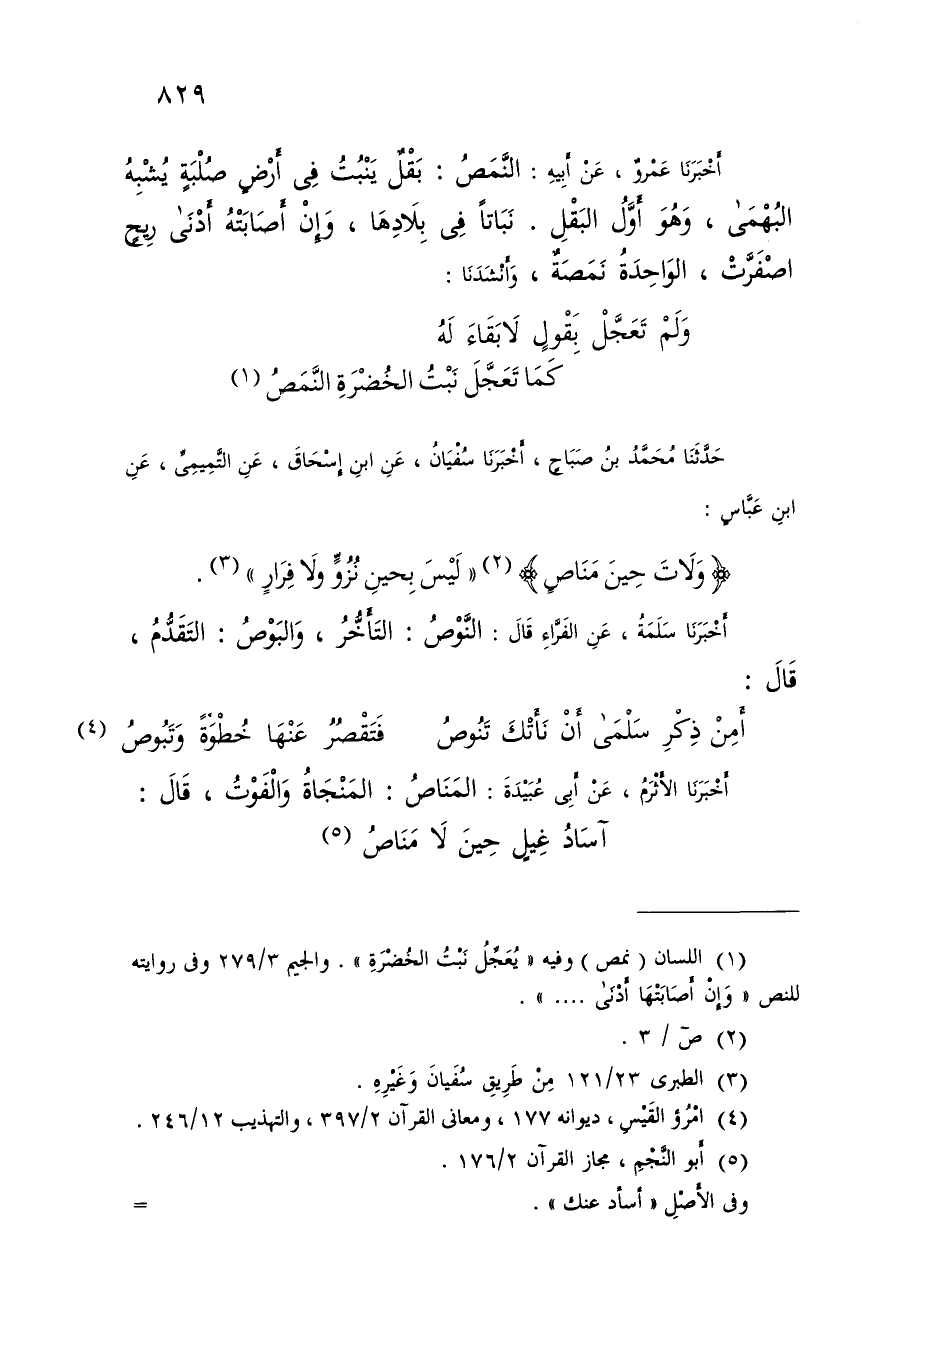 ٨٢٩
أَخْبَرَنَا عَمْروٌ ، عَنْ أَبِيهِ : النَّمَصُ : بَقْلٌ يَنْبُتُ فِى أَرْضٍ صُلْبَةٍ يُشْبِهُ
البُهْمَىٰ ، وَهُوَ أَوَّلُ البَقْلِ . نَبَاتاً فِى بِلَادِهَا ، وَإِنْ أَصَابَتْهُ أَدْنَىٰ رِيحٍ
اصْفَرَّتْ ، الوَاحِدَةُ نَمَصَةٌ ، وَأَنْشَدَنَا :
وَلَمْ تَعَجَّلْ بِقَْولٍ لَابَقَاءَ لَهُ
كَمَا تَعَجَّلَ نَبْتُ الخُضْرَةِ النَّمَصُ (١)
حَدَّثَنَا مُحَمَّدُ بنُ صَبَاحٍ ، أَخْبَرَنَا سُفْيَانُ ، عَنِ ابنِ إِسْحَاقَ ، عَنِ التَّمِيمِىِّ ، عَنِ
ابنِ عَبَّاسٍ :
﴿ وَلَاتَ حِينَ مَنَاصٍ ﴾ (٢) « لَيْسَ بِحينِ نُزُوٍّ ولَا فِرَارٍ » (٣) .
أَخْبَرَنَا سَلَمَةُ ، عَنِ الفَرَّاءِ قَالَ : النَّوْصُ : التَأَخُّرُ ، وَالبَوْصُ : التَقَدُّمُ ،
قَالَ :
أَمِنْ ذِكْرِ سَلْمَىٰ أَنْ نَأَتْكَ تَنُوصُ فَتَقْصُرُ عَنْهَا خُطْوَةً وَتَبُوصُ (٤)
أَخْبَرَنَا الأَثْرَمُ ، عَنْ أَبِى عُبَيْدَةَ : المَنَاصُ : المَنْجَاةُ وَالْفَوْتُ ، قَالَ :
آسَادُ غِيلٍ حِينَ لَا مَنَاصُ (٥)
(١) اللسان ( نمص ) وفيه « يُعَجِّلُ نَبْتُ الخُضْرَةِ » . والجيم ٢٧٩/٣ وفى روايته
للنص « وَإِنْ أَصَابَتْهَا أَدْنَىٰ .... » .
(٢) صٓ / ٣ .
(٣) الطبرى ١٢١/٢٣ مِنْ طَرِيقِ سُفْيانَ وَغَيْرِهِ .
(٤) امْرُؤ القَيْسِ ، ديوانه ١٧٧ ، ومعانى القرآن ٣٩٧/٢ ، والتهذيب ٢٤٦/١٢ .
(٥) أَبو النَّجْمِ ، مجاز القرآن ١٧٦/٢ .
وفى الأَصْلِ « أسأد عنك » . =